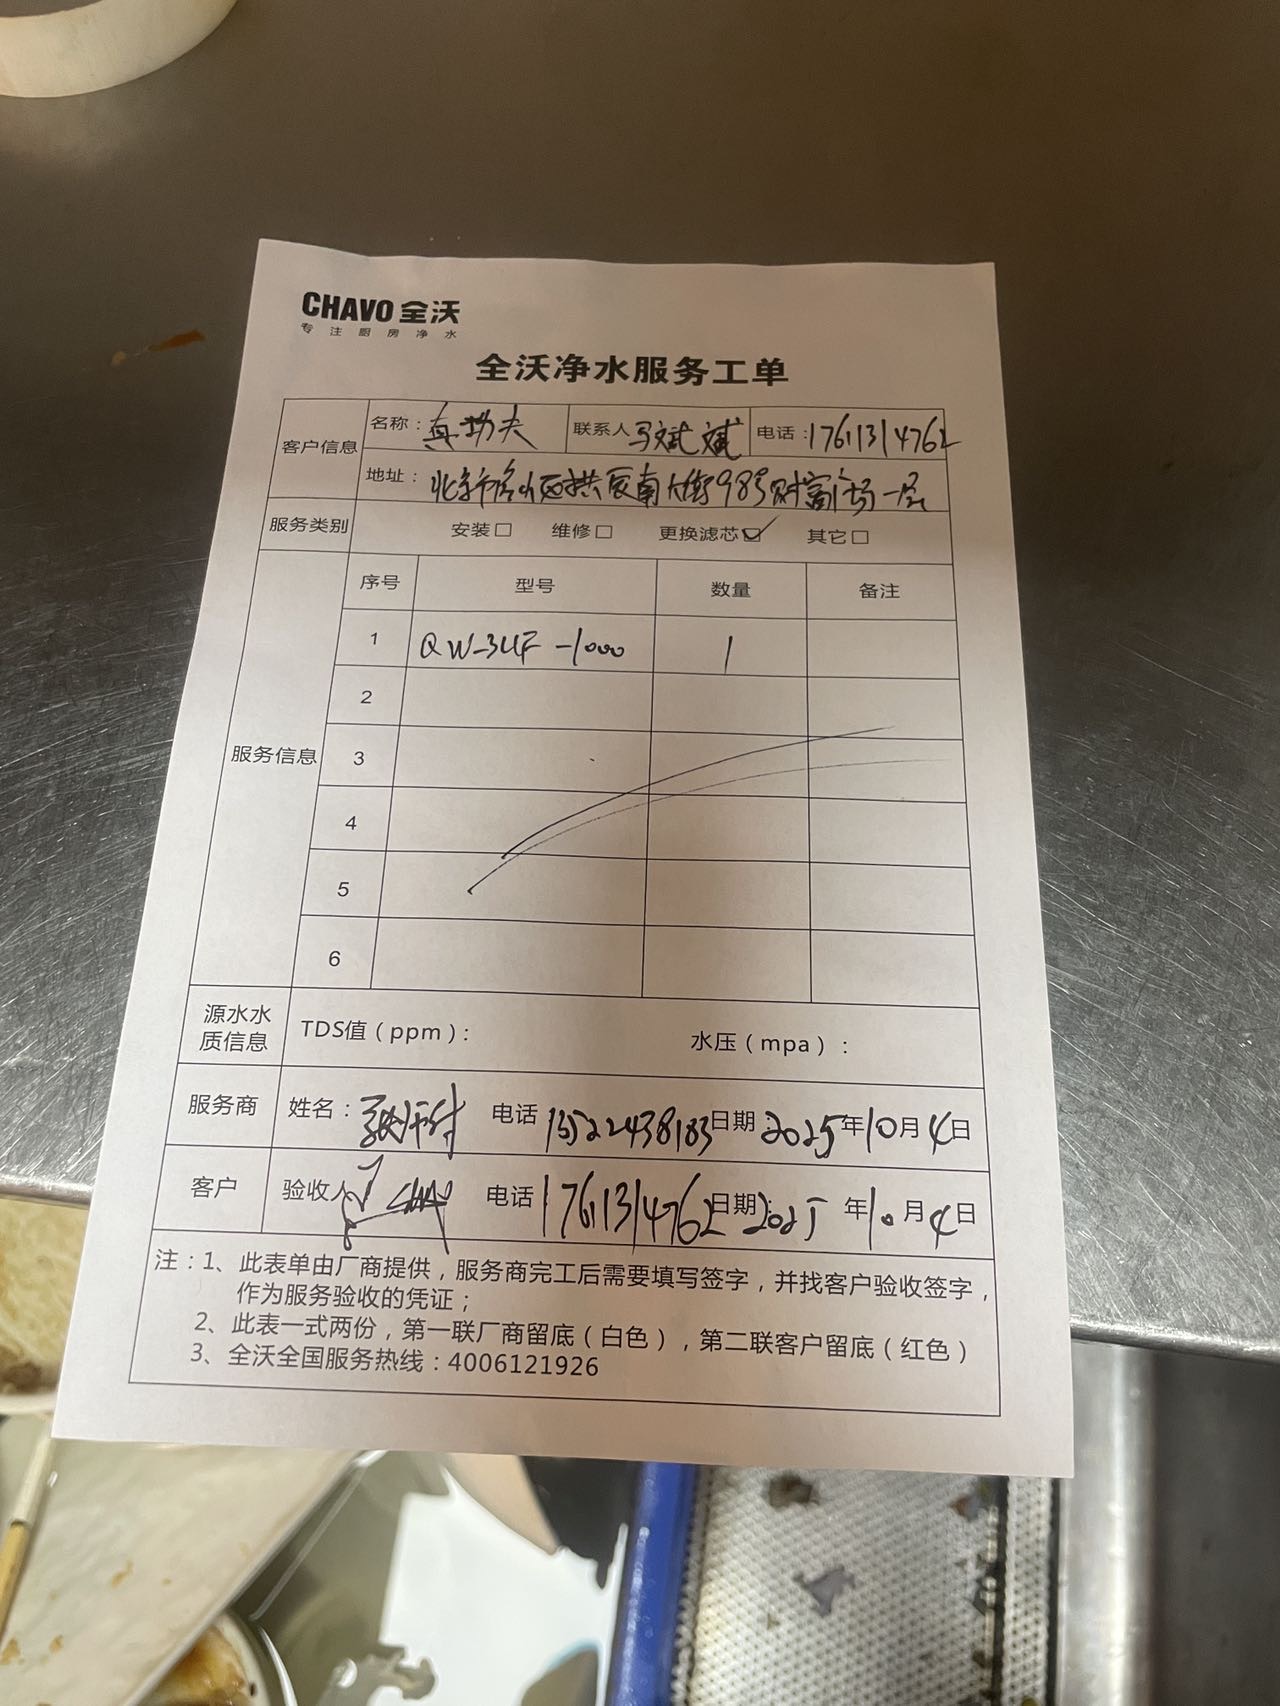 CHAVO 全沃
专注厨房净水
全沃净水服务工单
客户信息 名称：真功夫 联系人 马斌斌 电话：17611314762
地址：北京市房山区拱辰南大街98号财富广场一层
服务类别 安装□ 维修□ 更换滤芯☑ 其它□
服务信息 序号 型号 数量 备注
1 QW-3UF-1000 1
2
3
4
5
6
源水水质信息 TDS值（ppm）： 水压（mpa）：
服务商 姓名： 电话 13522438183 日期：2025年10月4日
客户 验收人 电话 17611314762 日期：2025年10月4日
注：1、此表单由厂商提供，服务商完工后需要填写签字，并找客户验收签字，
作为服务验收的凭证；
2、此表一式两份，第一联厂商留底（白色），第二联客户留底（红色）
3、全沃全国服务热线：4006121926